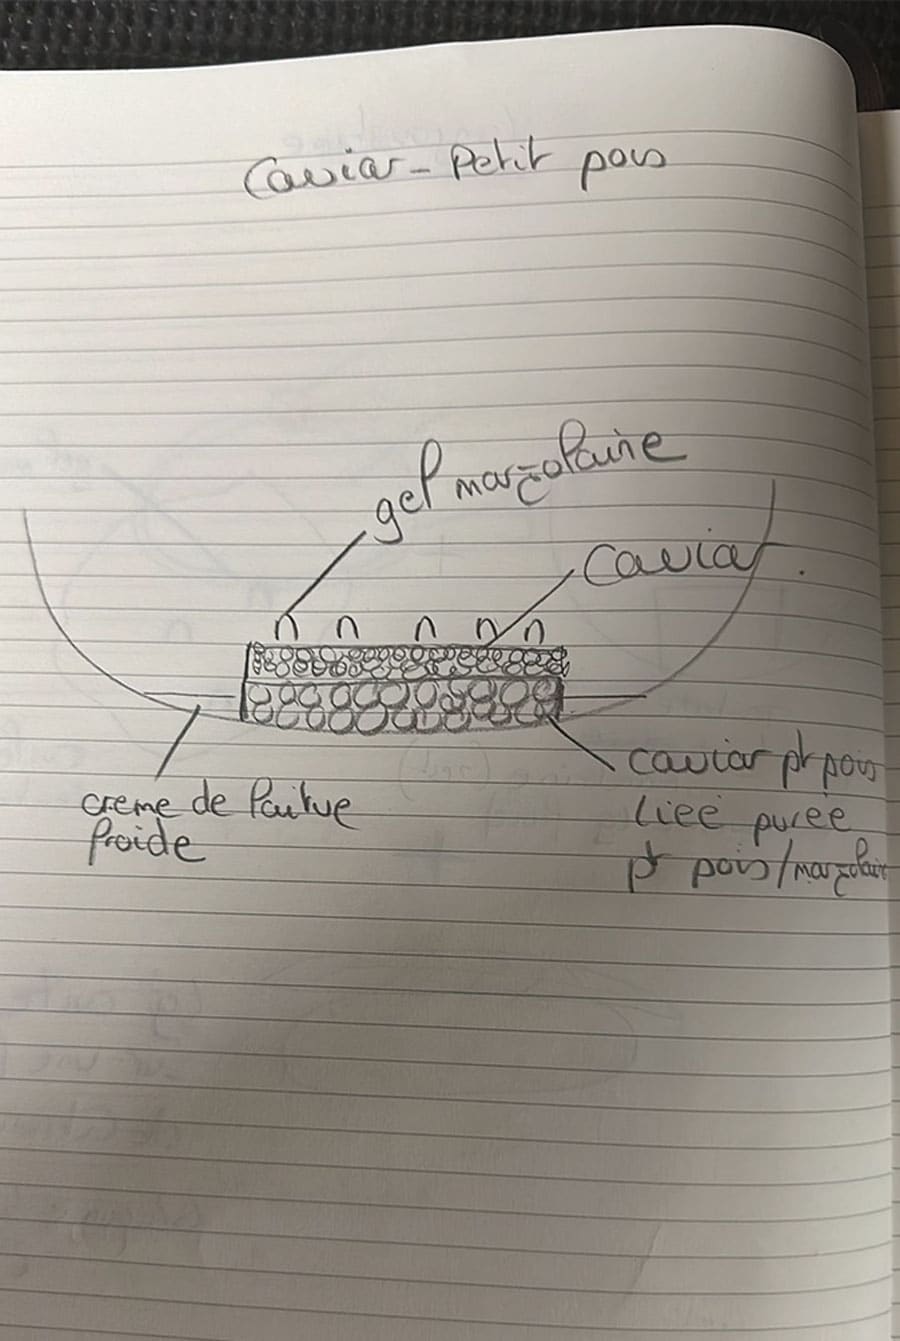 Caviar - Petit pois
gel marjolaine
Caviar.
creme de laitue
froide
caviar pt pois
liée purée
pt pois/marjolaine